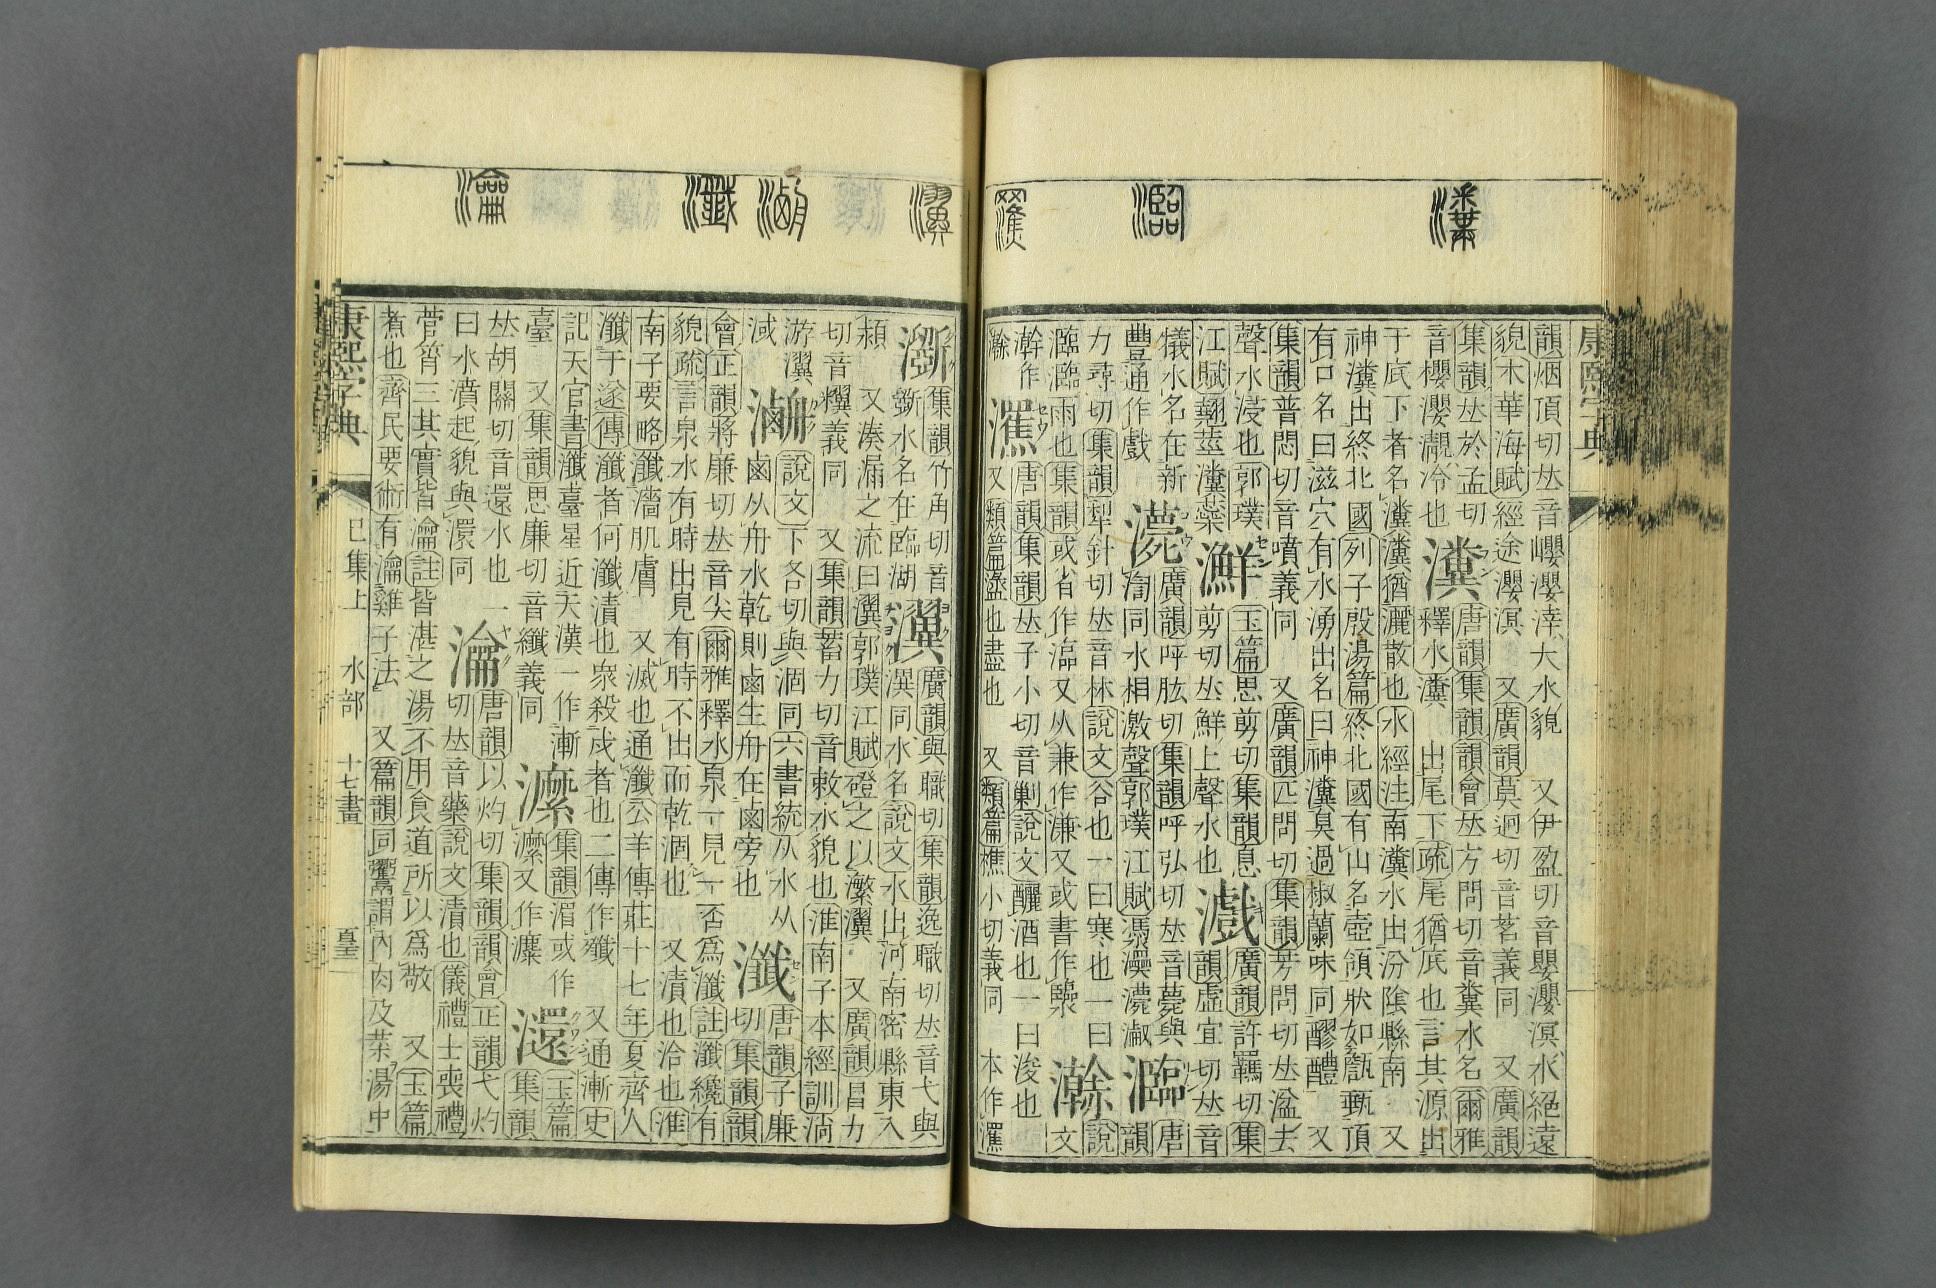 韻烟頂切𠀤音巊瀴涬大水貌　又伊盈切音嬰瀴溟水絕遠
貌木華海賦經途瀴溟　又廣韻莫迥切音茗義同　又廣韻
集韻𠀤於孟切
音櫻瀴覾冷也
瀵
唐韻集韻韻會𠀤方問切音糞水名爾雅
釋水瀵　出尾下疏尾猶底也言其源出
于底下者名瀵瀵猶灑散也水經注南瀵水出汾隂縣南　又
神瀵出終北國列子殷湯篇終北國有山名壺領狀如甔甄頂
有口名曰滋穴有水湧出名曰神瀵臭過椒蘭味同醪醴　又
集韻普悶切音噴義同　又廣韻匹問切集韻芳問切𠀤湓去
聲水浸也郭璞
江賦翹莖瀵蘂
玉篇思剪切集韻息
剪切𠀤鮮上聲水也
廣韻許羈切集
韻虛宜切𠀤音
犧水名在新
豐通作戲
廣韻呼肱切集韻呼弘切𠀤音薨與
渹同水相激聲郭璞江賦
瀶
唐
韻
力尋切集韻犁針切𠀤音林說文谷也一曰寒也一曰
瀶瀶雨也集韻或省作㴰又从兼作溓又或書作
說
文
唐韻集韻𠀤子小切音剿說文釃酒也一曰浚也
又類篇盪也盡也　又類篇樵小切義同　本作
集韻竹角切音
斲水名在臨湖
瀷
廣韻與職切集韻逸職切𠀤音弋與
潩同水名說文水出河南密縣東入
潁　又湊漏之流曰瀷郭璞江賦磴之以瀿瀷　又廣韻昌力
切音糨義同　又集韻蓄力切音敕水貌也淮南子本經訓淌
游瀷
淢
說文下各切與涸同六書統从水从
鹵从舟水乾則鹵生舟在鹵旁也
瀸
唐韻子廉
切集韻韻
會正韻將廉切𠀤音尖爾雅釋水泉一見一否爲瀸註瀸纔有
貌疏言泉水有時出見有時不出而乾涸也　又漬也洽也淮
南子要略瀸濇肌膚　又滅也通瀸公羊傳莊十七年夏齊人
瀸于遂傳瀸者何瀸漬也衆殺戍者也二傳作殲　又通漸史
記天官書瀸臺星近天漢一作漸
臺　又集韻思廉切音纖義同
集韻湄或作
又作
澴
玉篇
集韻
𠀤胡關切音還水也一
曰水濆起貌與澴同
瀹
唐韻以灼切集韻韻會正韻弋灼
切𠀤音藥說文漬也儀禮士喪禮
菅筲三其實皆瀹註皆湛之湯不用食道所以爲敬　又玉篇
煮也齊民要術有瀹雞子法　又篇韻同鬻謂內肉及菜湯中
康熙字典　巳集上　水部　十七畫